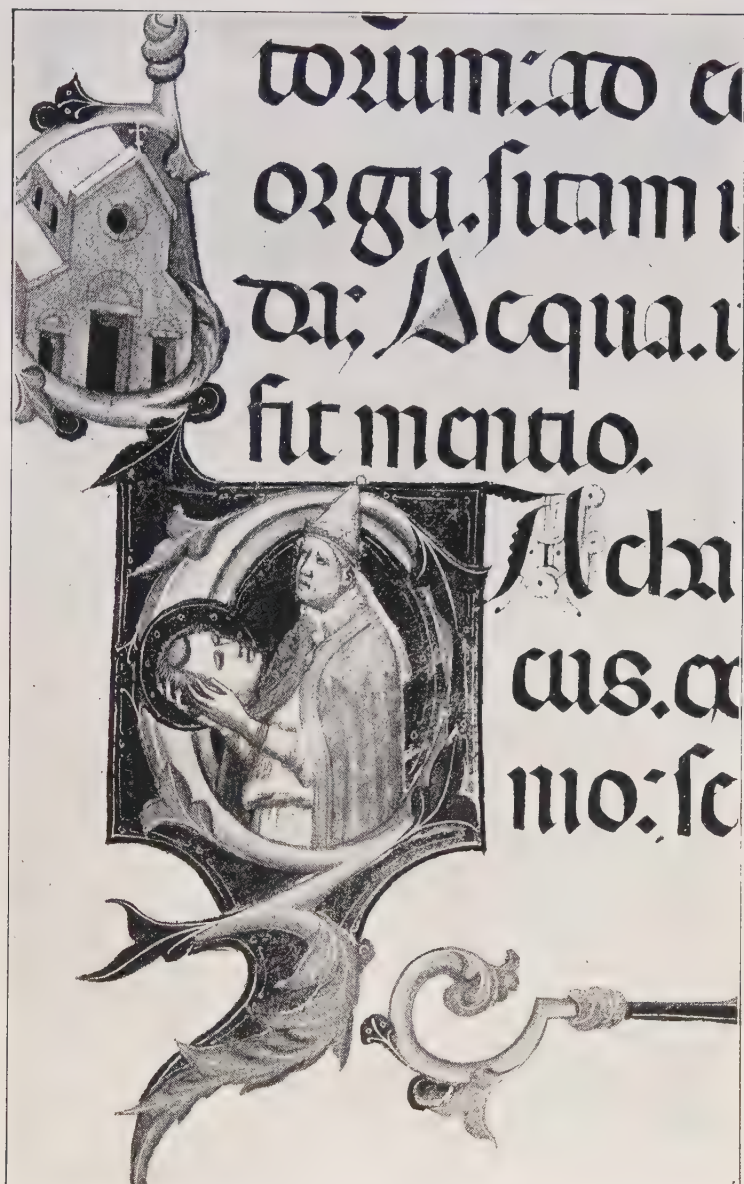 torum: ad
orgii. sitam i
da; Acqua. i
fit mentio.
Acha
cus. ex
nio: sc